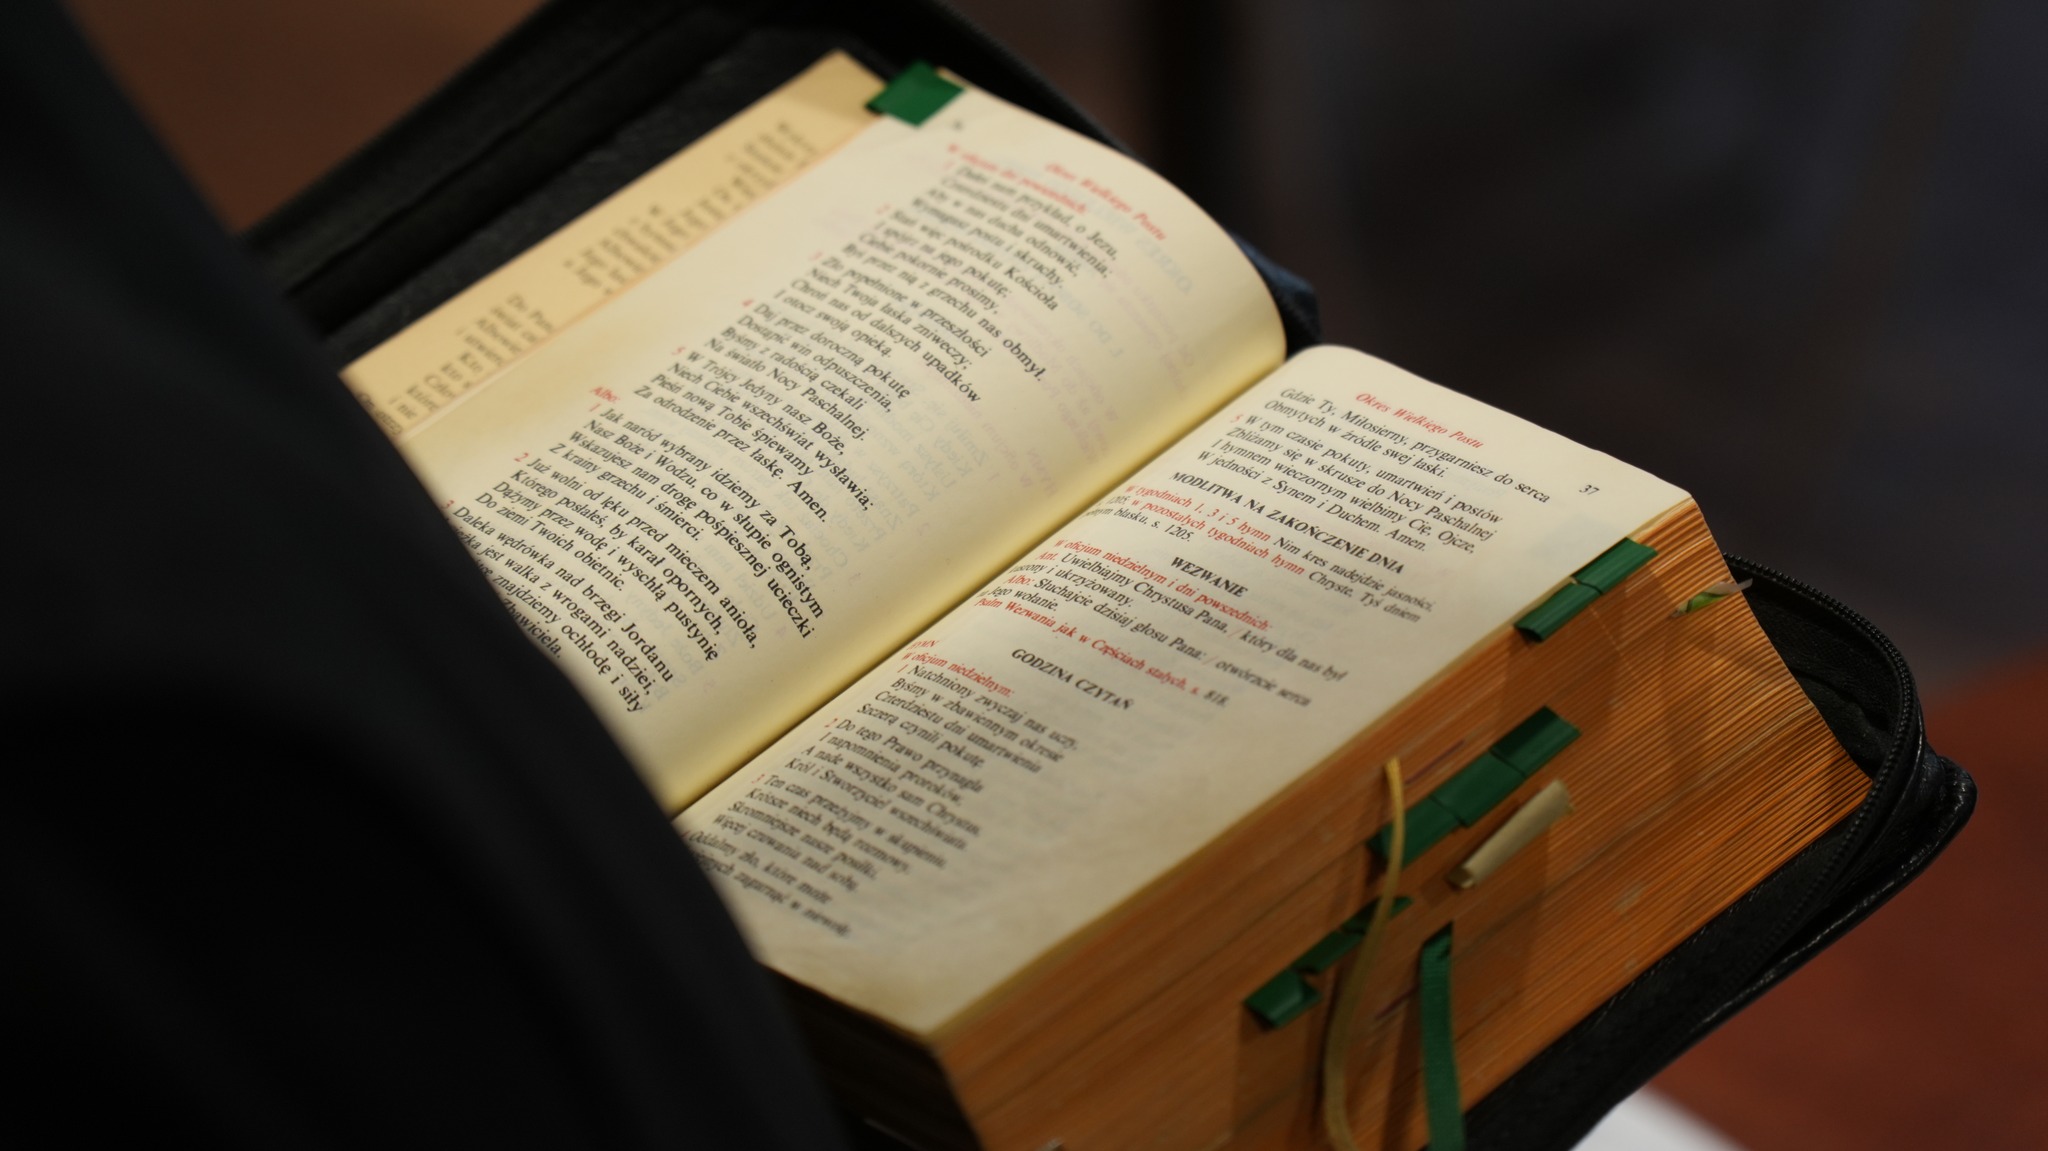 Okres Wielkiego Postu
W oficjum dni powszednich:
1 Dałeś nam przykład, o Jezu,
Czterdziestu dni umartwienia,
Aby w nas ducha odnowić,
Wymagasz postu i skruchy.
2 Stań więc pośrodku Kościoła
I spójrz na jego pokutę,
Ciebie pokornie prosimy,
Byś przez nią z grzechu nas obmył.
3 Zło popełnione w przeszłości
Niech Twoja łaska zniweczy;
Chroń nas od dalszych upadków
I otocz swoją opieką.
4 Daj przez doroczną pokutę
Dostąpić win odpuszczenia,
Byśmy z radością czekali
Na światło Nocy Paschalnej.
5 W Trójcy Jedyny nasz Boże,
Niech Ciebie wszechświat wysławia;
Pieśń nową Tobie śpiewamy
Za odrodzenie przez łaskę. Amen.
Albo:
1 Jak naród wybrany idziemy za Tobą,
Nasz Boże i Wodzu, co w słupie ognistym
Wskazujesz nam drogę pośpiesznej ucieczki
Z krainy grzechu i śmierci.
2 Już wolni od lęku przed mieczem anioła,
Którego posłałeś, by karał opornych,
Dążymy przez wodę i wyschłą pustynię
Do ziemi Twoich obietnic.
3 Daleka wędrówka nad brzegi Jordanu
jest walka z wrogami nadziei,
znajdziemy ochłodę i siły
Zbawiciela.
Okres Wielkiego Postu 37
Gdzie Ty, Miłosierny, przygarniesz do serca
Obmytych w źródle swej łaski.
5 W tym czasie pokuty, umartwień i postów
Zbliżamy się w skrusze do Nocy Paschalnej
I hymnem wieczornym wielbimy Cię, Ojcze,
W jedności z Synem i Duchem. Amen.
MODLITWA NA ZAKOŃCZENIE DNIA
W tygodniach 1, 3 i 5 hymn Nim kres nadejdzie jasności,
1205. w pozostałych tygodniach hymn Chryste, Tyś dniem
blasku, s. 1205.
WEZWANIE
W oficjum niedzielnym i dni powszednich:
Ant. Uwielbiajmy Chrystusa Pana, / który dla nas był
i ukrzyżowany.
Albo: Słuchajcie dzisiaj głosu Pana: / otwórzcie serca
Jego wołanie.
Psalm Wezwania jak w Częściach stałych, s. 818.
GODZINA CZYTAŃ
HYMN
W oficjum niedzielnym:
1 Natchniony zwyczaj nas uczy,
Byśmy w zbawiennym okresie
Czterdziestu dni umartwienia
Szczerą czynili pokutę.
2 Do tego Prawo przynagla
I napomnienia proroków,
A nade wszystko sam Chrystus,
Król i Stworzyciel wszechświata.
3 Ten czas przeżyjmy w skupieniu,
Krótsze niech będą rozmowy,
Skromniejsze nasze posiłki,
Więcej czuwania nad sobą.
Oddalmy zło, które może
zagarnąć w niewolę,